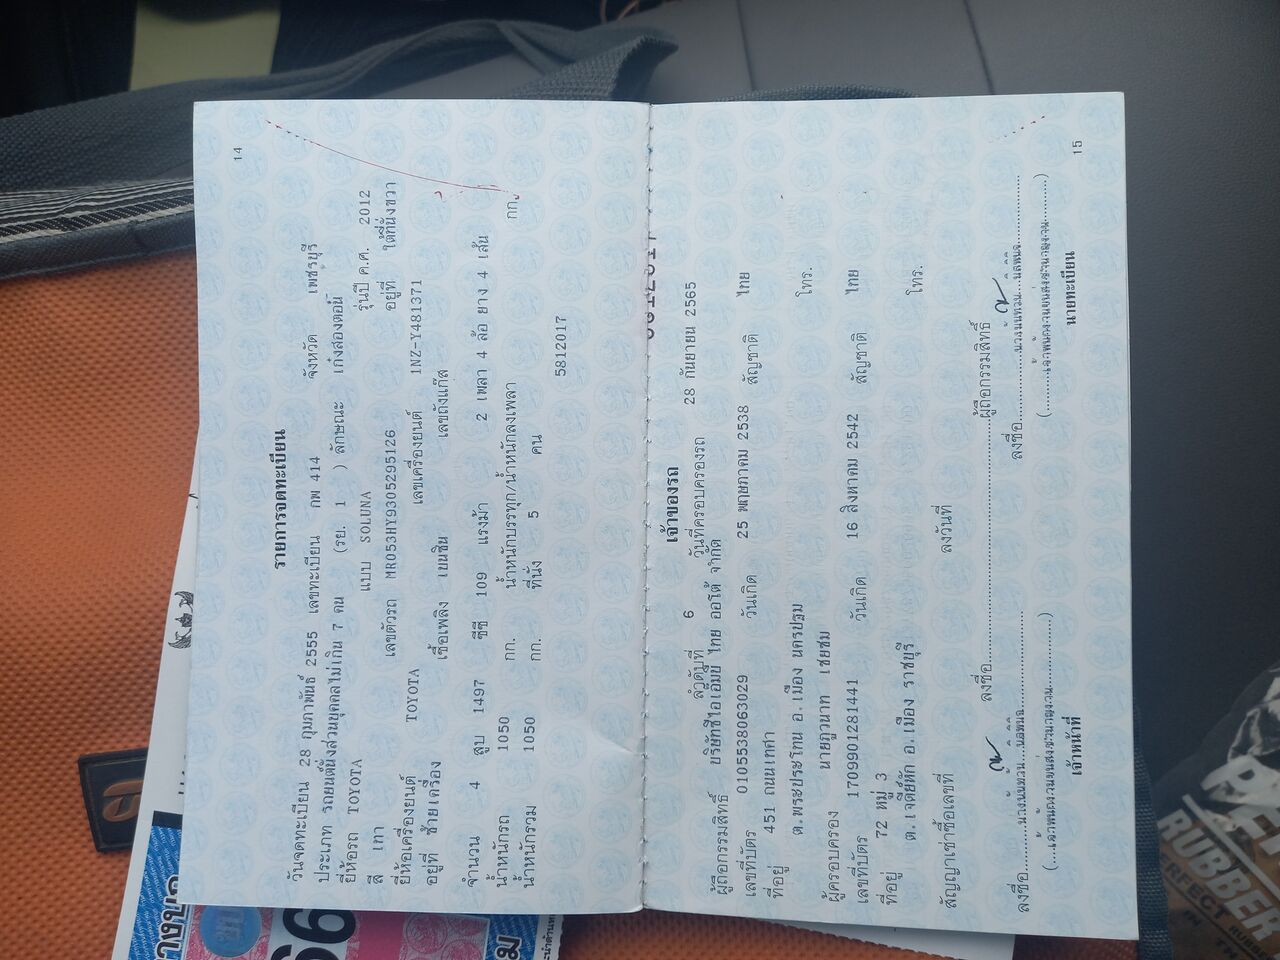 14
รายการจดทะเบียน
วันจดทะเบียน 28 กุมภาพันธ์ 2555 เลขทะเบียน กพ 414 จังหวัด เพชรบุรี
ประเภท รถยนต์นั่งส่วนบุคคลไม่เกิน 7 คน (รย. 1 ) ลักษณะ เก๋งสองตอน
ยี่ห้อรถ TOYOTA แบบ SOLUNA รุ่นปี ค.ศ. 2012
สี เทา เลขตัวรถ MR053HY9305295126 อยู่ที่ ใต้ที่นั่งขวา
ยี่ห้อเครื่องยนต์ TOYOTA เลขเครื่องยนต์ 1NZ-Y481371
อยู่ที่ ซ้ายเครื่อง เชื้อเพลิง เบนซิน เลขถังแก๊ส
จำนวน 4 สูบ 1497 ซีซี 109 แรงม้า 2 เพลา 4 ล้อ ยาง 4 เส้น
น้ำหนักรถ 1050 กก. น้ำหนักบรรทุก/น้ำหนักลงเพลา กก.
น้ำหนักรวม 1050 กก. ที่นั่ง 5 คน
5812017
เจ้าของรถ
ลำดับที่ 6 วันที่ครอบครองรถ 28 กันยายน 2565
ผู้ถือกรรมสิทธิ์ บริษัทซีไอเอ็มบี ไทย ออโต้ จำกัด
เลขที่บัตร 0105538063029 วันเกิด 25 พฤษภาคม 2538 สัญชาติ ไทย
ที่อยู่ 451 ถนนเทศา
ต.พระประโทน อ.เมือง นครปฐม โทร.
ผู้ครอบครอง นายภูวนาท เชยชม
เลขที่บัตร 1709901281441 วันเกิด 16 สิงหาคม 2542 สัญชาติ ไทย
ที่อยู่ 72 หมู่ 3
ต.เจดีย์หัก อ.เมือง ราชบุรี โทร.
สัญญาเช่าซื้อเลขที่ ลงวันที่
ลงชื่อ ผู้ถือกรรมสิทธิ์
ลงชื่อ ลงชื่อ
เจ้าหน้าที่ นายทะเบียน
15
RUBBER
PERFECT
IN